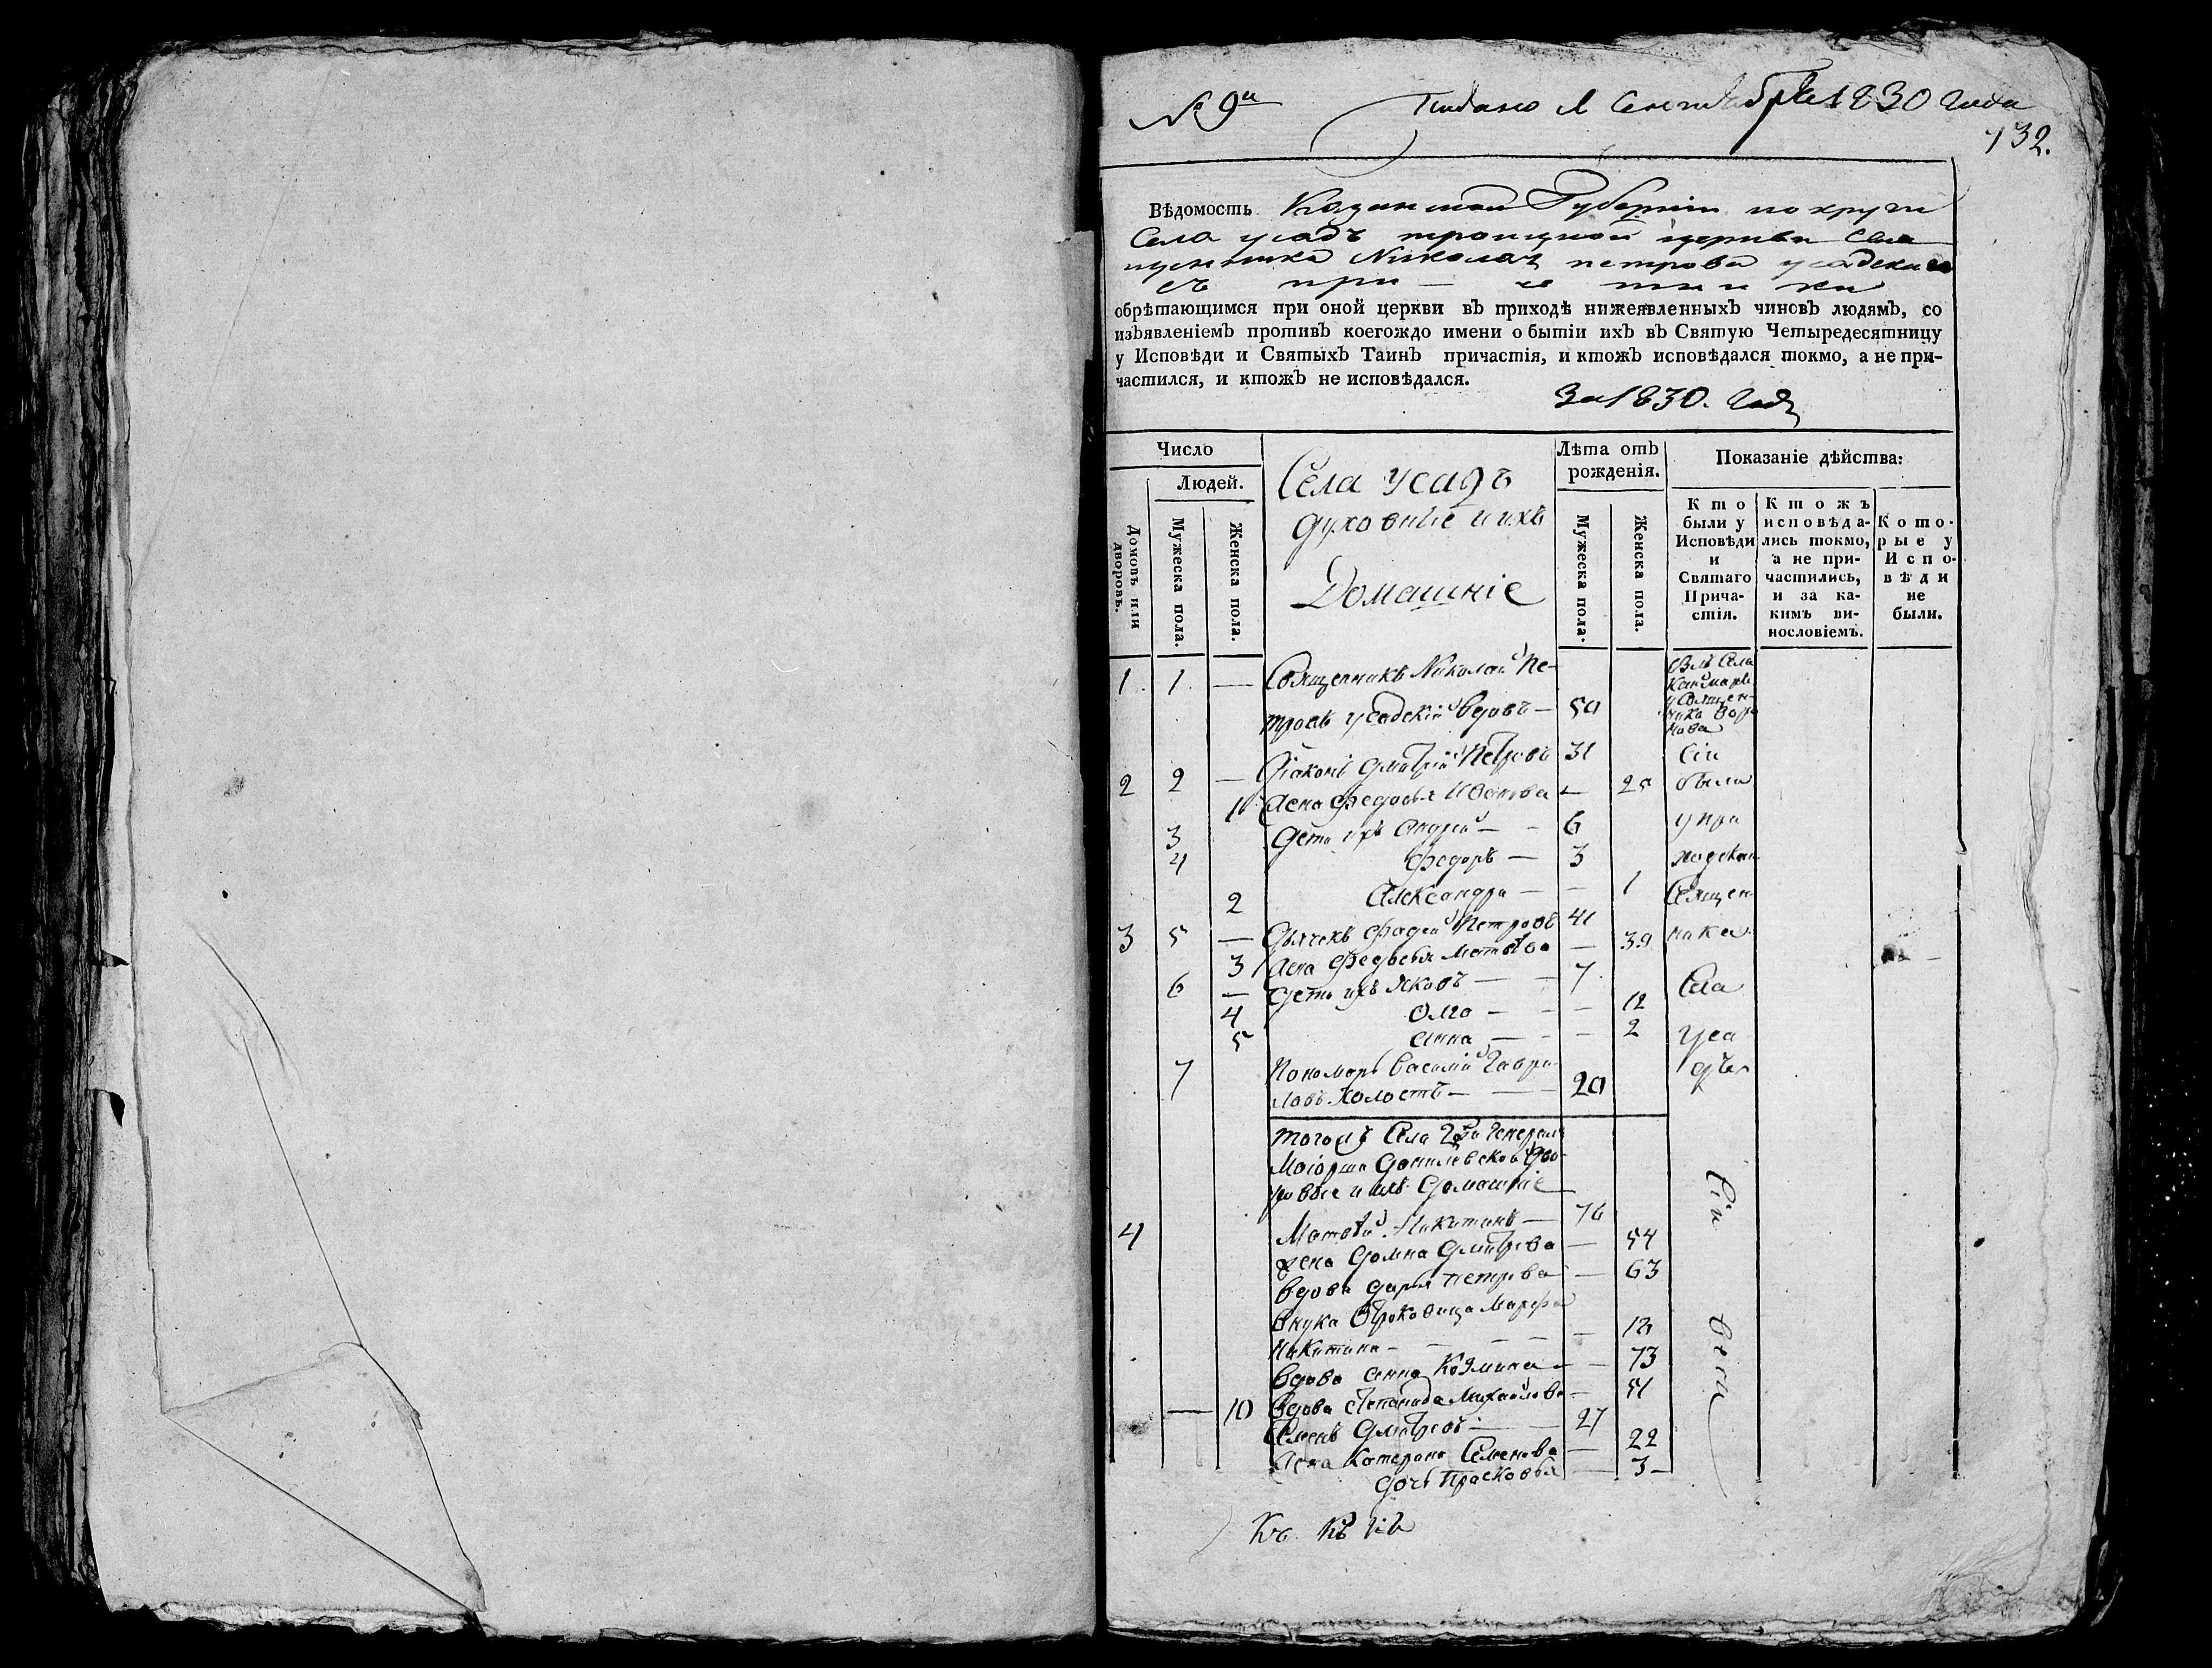 № 9й
Сентября 1830 года
132.
Вѣдомость Казанской Губерніи по округи
Села усадъ троицкой церкви Свя
щенника Николая петрова усадскаго
съ при - че тни ки
обрѣтающимся при оной церкви въ приходѣ нижеявленныхъ чиновъ людямъ, со
изъявленіемъ противъ коегождо имени о бытіи ихъ въ Святую Четыредесятницу
у Исповѣди и Святыхъ Таинъ причастія, и ктожъ исповѣдался токмо, а не при-
частился, и ктожъ не исповѣдался.
За 1830. Годъ
Число
Людей.
Домовъ или дворовъ.
Мужеска пола.
Женска пола.
Села усадъ
духовные и ихъ
Домашніе
Лѣта отъ рожденія.
Мужеска пола.
Женска пола.
Показаніе дѣйства:
Кто были у Исповѣди и Святаго Прича-стія.
Ктожъ исповѣда-лись токмо, а не при-частились, и за ка-кимъ ви-нословіемъ.
Кото-рые у Испо-вѣди не были.
1. 1. — Священникъ Николай Пе-
тровъ усадскій вдовъ — 50
2 2 — Діаконъ Дмитрій Петровъ 31 Сіи
1 Жена Федосья Иванова — 25 были
3 Дети ихъ Андрей — - 6 у при
4 Федоръ — 3 ходскаго
2 Александра — - 1 Священ
3 5 — Дьячекъ Фадей Петровъ 41
3 Жена Федосья Матвѣва — 39 ника
6 — Дети ихъ Яковъ — - 7. Села
4 Олга - - - 12
5 Анна - - - 2 Уса
7 Пономарь Василій Гаври- дъ
ловъ Холостъ — 20
тогожъ Села Гжи Генералъ
Маіорши Данилевской Дво-
ровые и ихъ Домашніе
4 Матвѣй Никитинъ — 76 Сіи
жена Домна Дмитрева — 54
вдова Дарья петрова — 63
внука Отроковица Марфа
Никитина - - — 13
вдова Анна Козмина - - 73
— 10 вдова Степанида Михайлова — 51
Семенъ Дмитревъ — 27
Жена Катерина Семенова — 22
дочь Прасковья — 3 -